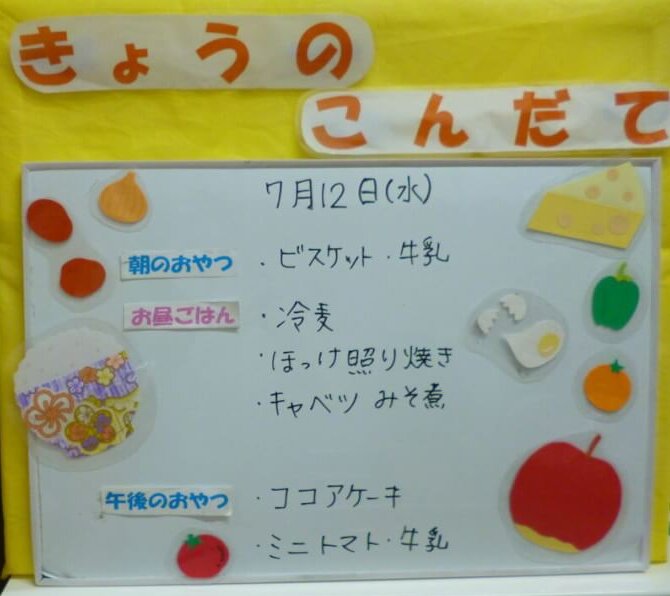 きょうの
こんだて
7月12日(水)
朝のおやつ ・ビスケット・牛乳
お昼ごはん ・冷麦
・ほっけ照り焼き
・キャベツ みそ煮
午後のおやつ ・ココアケーキ
・ミニトマト・牛乳